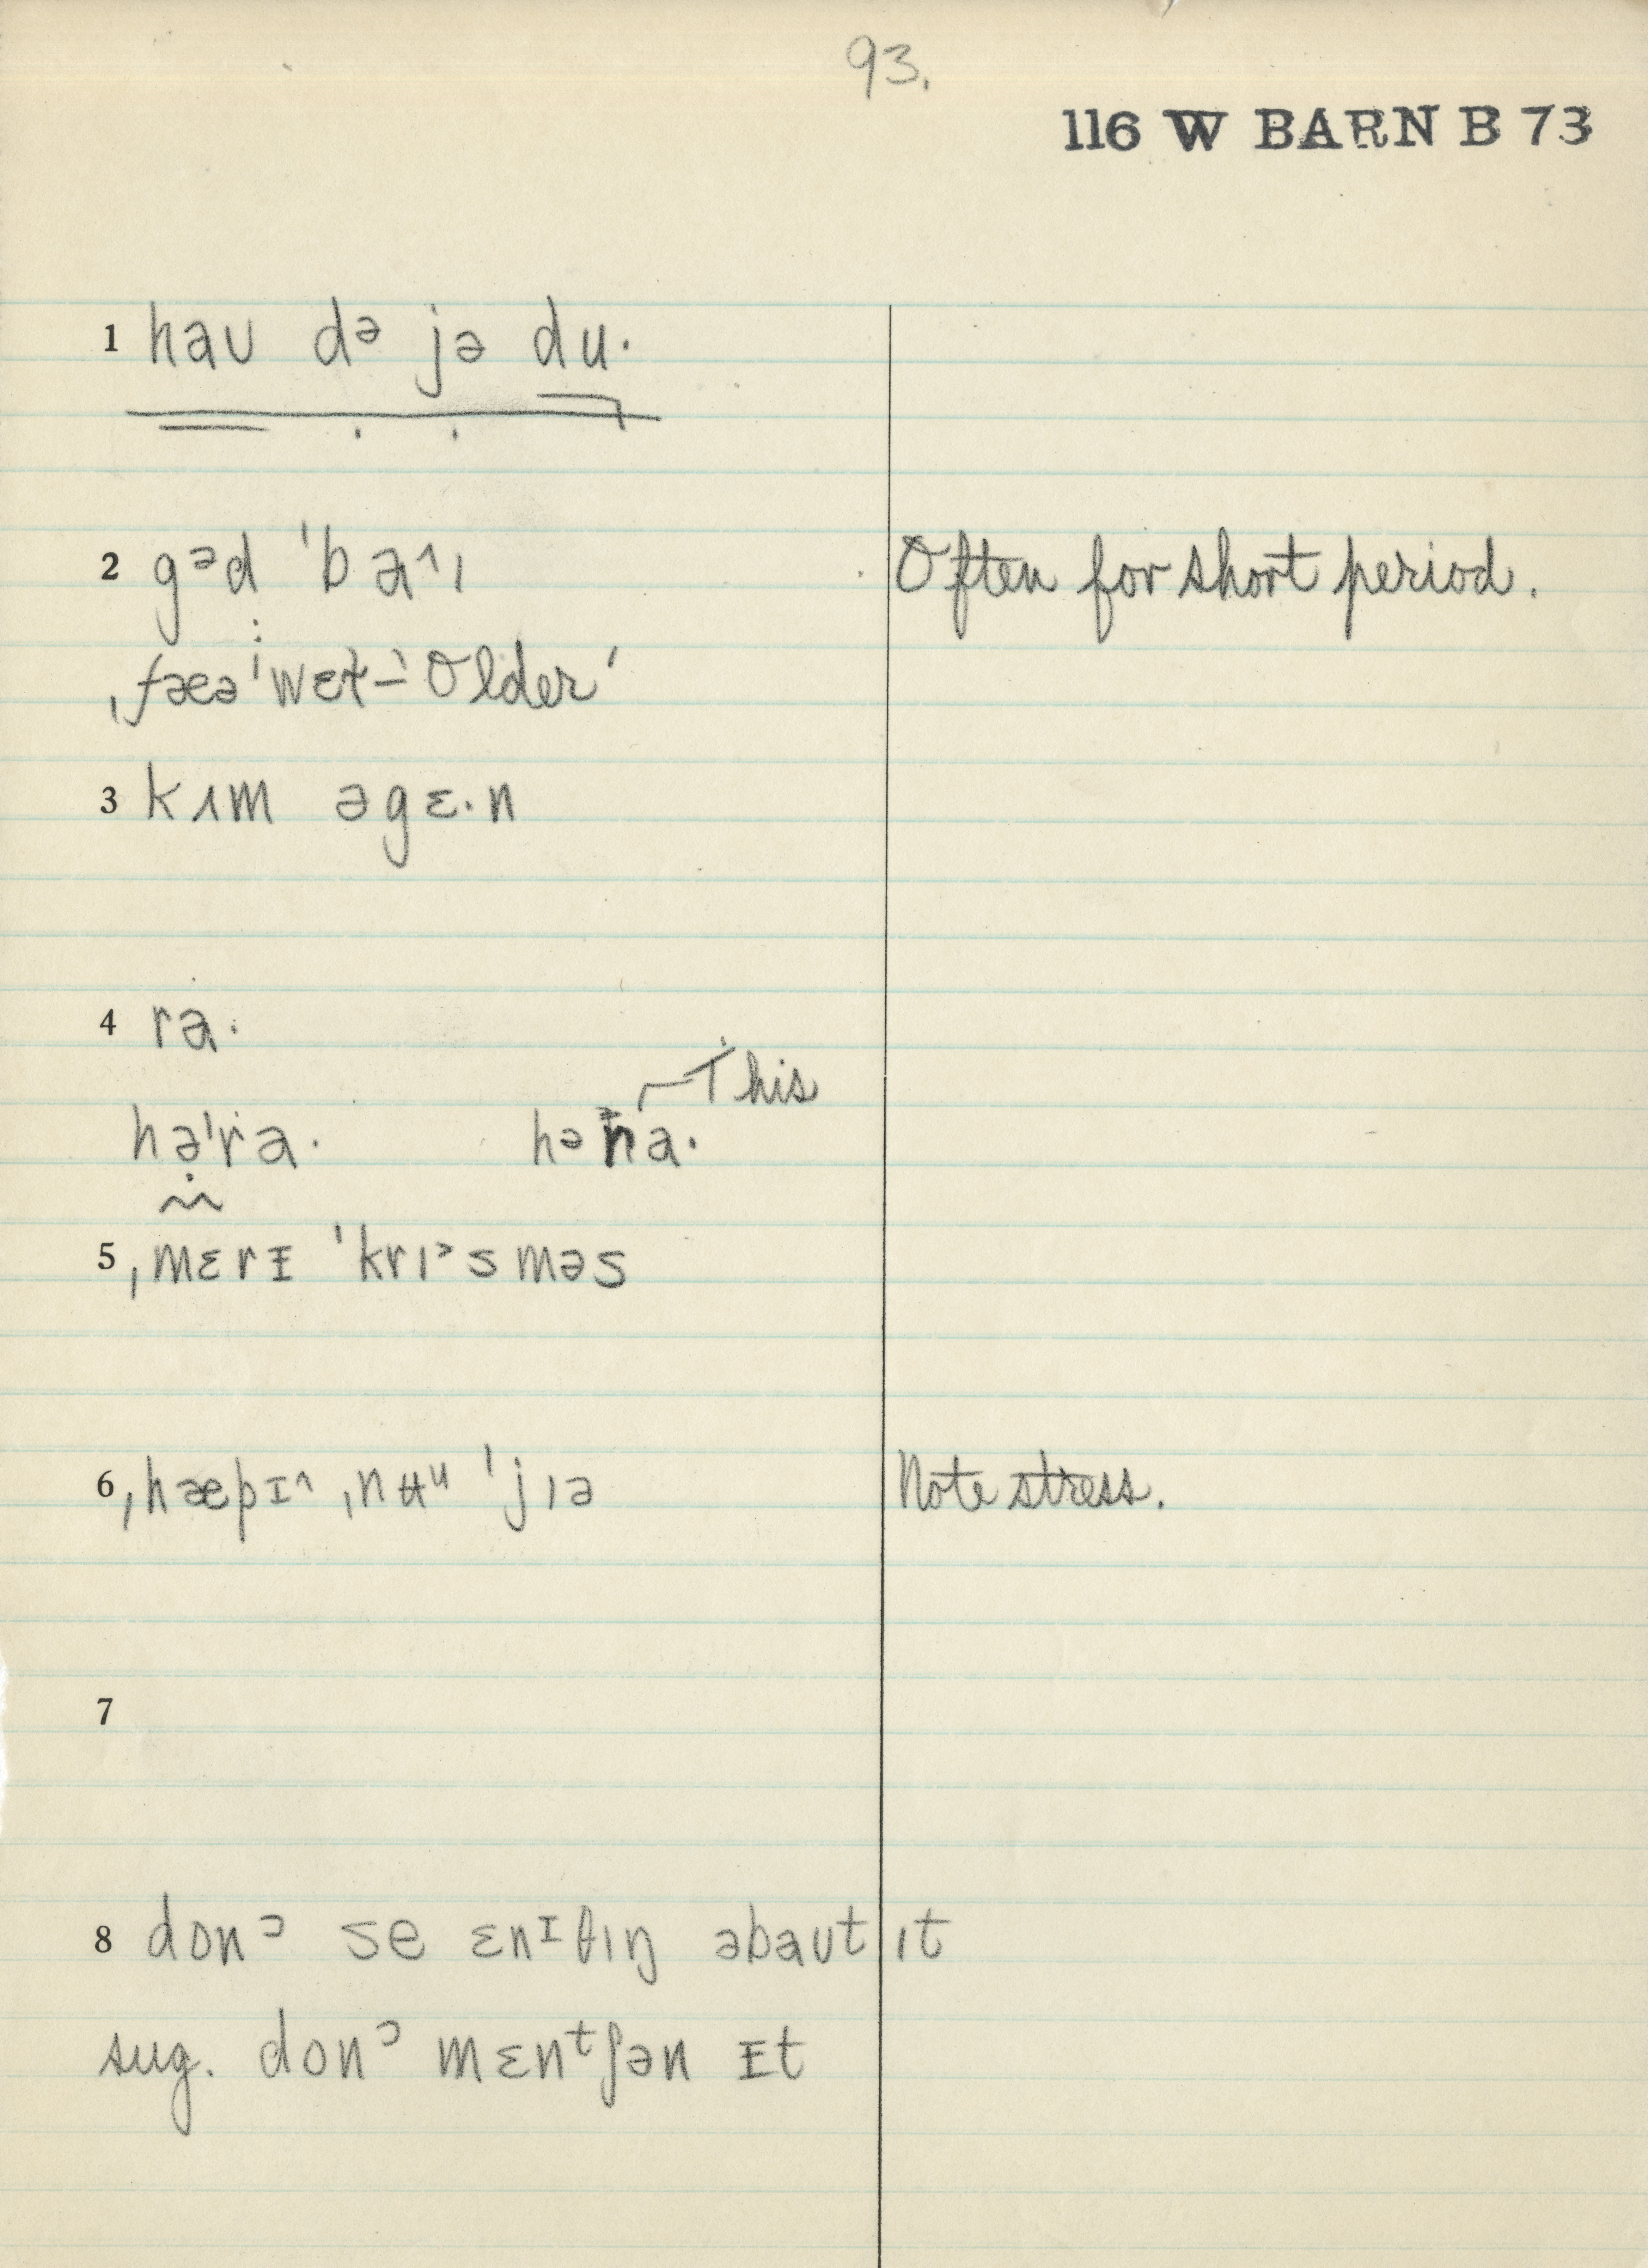 93.
116 W BARN B 73
1 haʊ dᵊ jə du·
2 gᵊd ˈbaˆɪ Often for short period.
: ˌfæəˈwɛł – 'Older'
3 kʌm əgɛ·n
4 ra·
This
həˈra· həna·
5 ˌmɛrɪ ˈkrɪᵊsməs
6 ˌhæpɪˆ ˌnʉᵘ ˈjɪə Note stress.
7
8 donᵓ se ɛnᶦθɪŋ əbaʊt ɪt
sug. donᵓ mɛnᵗʃən ɪt